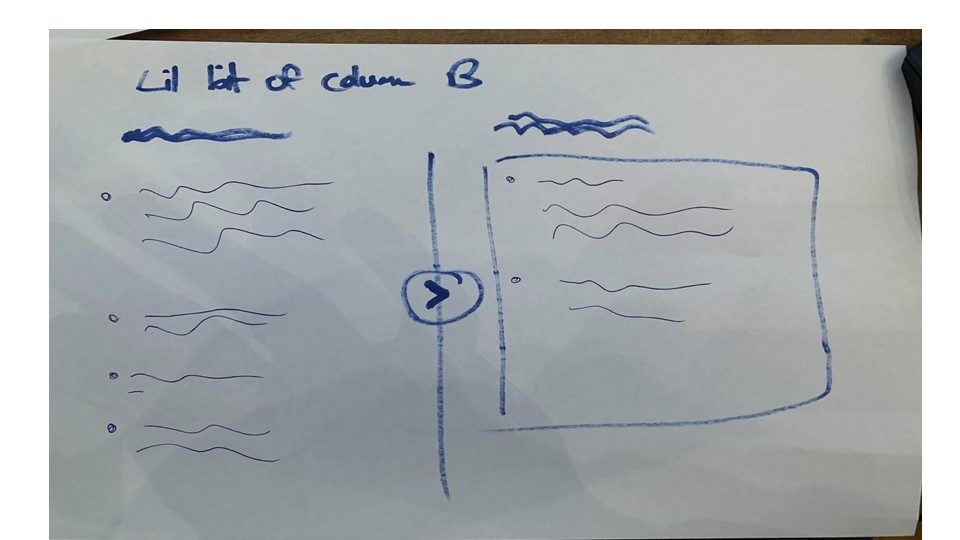 Lil bit of column B
>